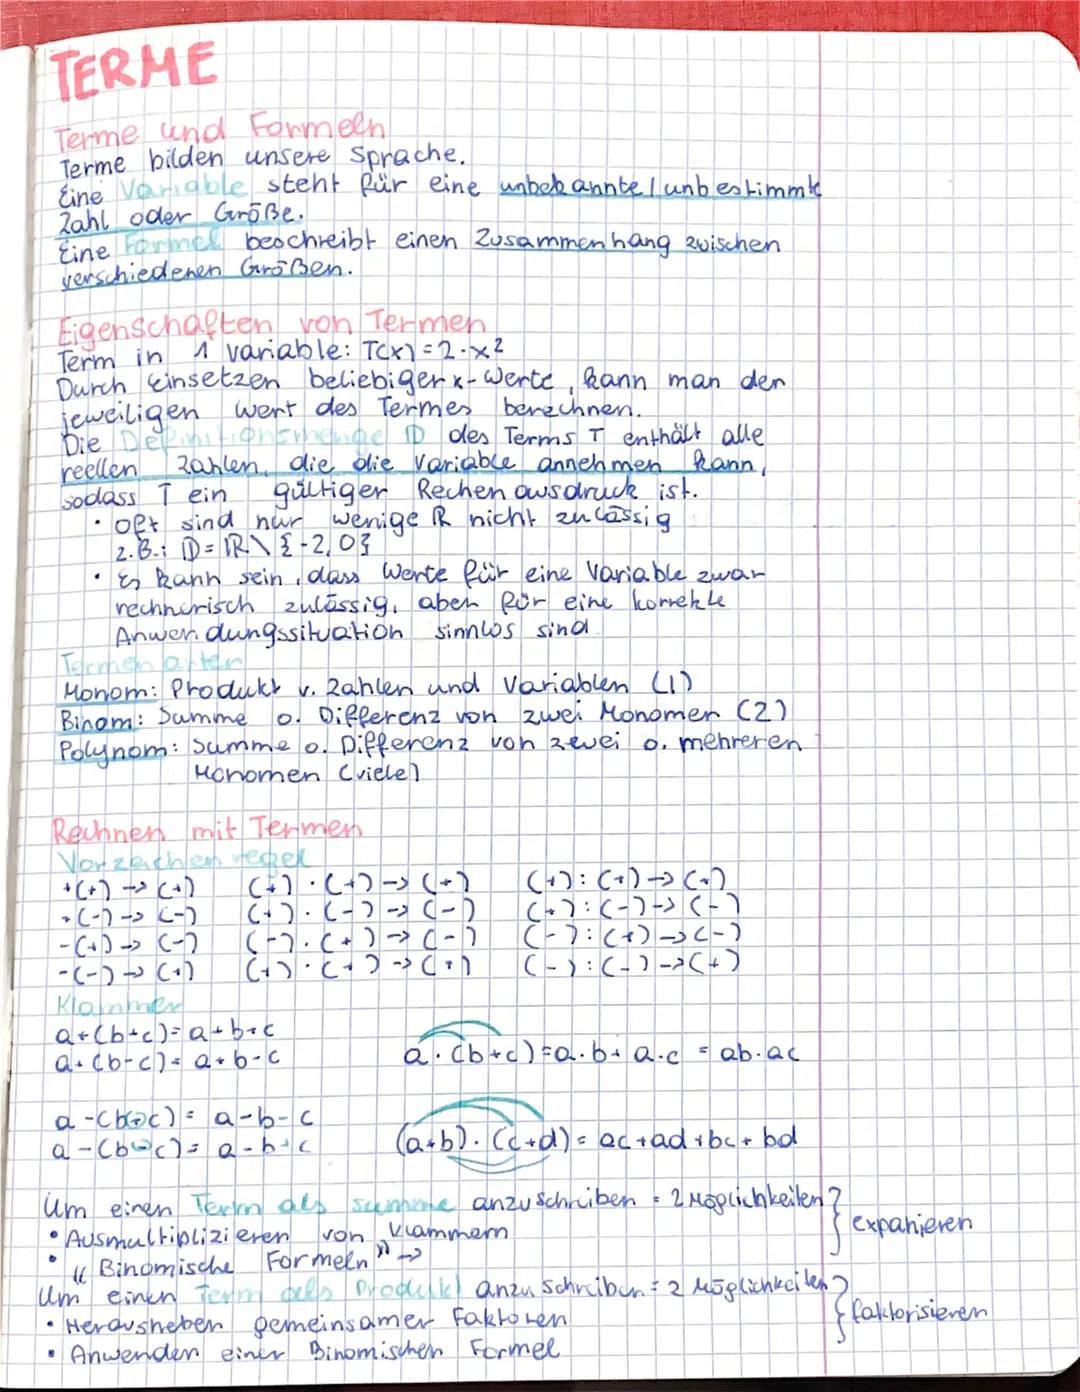 TERME
Terme und Formeln
Terme bilden unsere Sprache.
Eine Variable steht für eine unbekannte/unbestimmte
Zahl oder Größe.
Eine Formel beschreibt einen Zusammenhang zwischen
verschiedenen Größen.
Eigenschaften von Termen
Term in 1 variable: T(x) = 2·x²
Durch Einsetzen beliebiger x-Werte, kann man den
jeweiligen Wert des Termes berechnen.
Die Definitionsmenge D des Terms T enthält alle
reellen Zahlen, die die Variable annehmen kann,
sodass T ein gültiger Rechenausdruck ist.
• Oft sind nur wenige R nicht zulässig
z.B.: D = R \ {-2,0}
• Es kann sein, dass Werte für eine Variable zwar
rechnerisch zulässig, aber für eine korrekte
Anwendungssituation sinnlos sind
Termenarten
Monom: Produkt v. Zahlen und Variablen (1)
Binom: Summe o. Differenz von zwei Monomen (2)
Polynom: Summe o. Differenz von zwei o. mehreren
Monomen (viele)
Rechnen mit Termen
Vorzeichenregel
+(+) → (+) (+)·(+) → (+) (+):(+) → (+)
+(-) → (-) (+)·(-) → (-) (+):(-) → (-)
-(+) → (-) (-)·(+) → (-) (-):(+) → (-)
-(-) → (+) (+)·(+) → (+) (-):(-) → (+)
Klammer
a+(b+c) = a+b+c
a+(b-c) = a+b-c a·(b+c) = a·b + a·c = ab·ac
a-(b+c) = a-b-c
a-(b-c) = a-b+c (a+b)·(c+d) = ac+ad+bc+bd
Um einen Term als summe anzuschreiben = 2 Möglichkeiten
• Ausmultiplizieren von Klammern
• "Binomische Formeln" →
expanieren
Um einen Term als Produkt anzuschreiben = 2 Möglichkeiten
• Herausheben gemeinsamer Faktoren
• Anwenden einer Binomischen Formel
faktorisieren